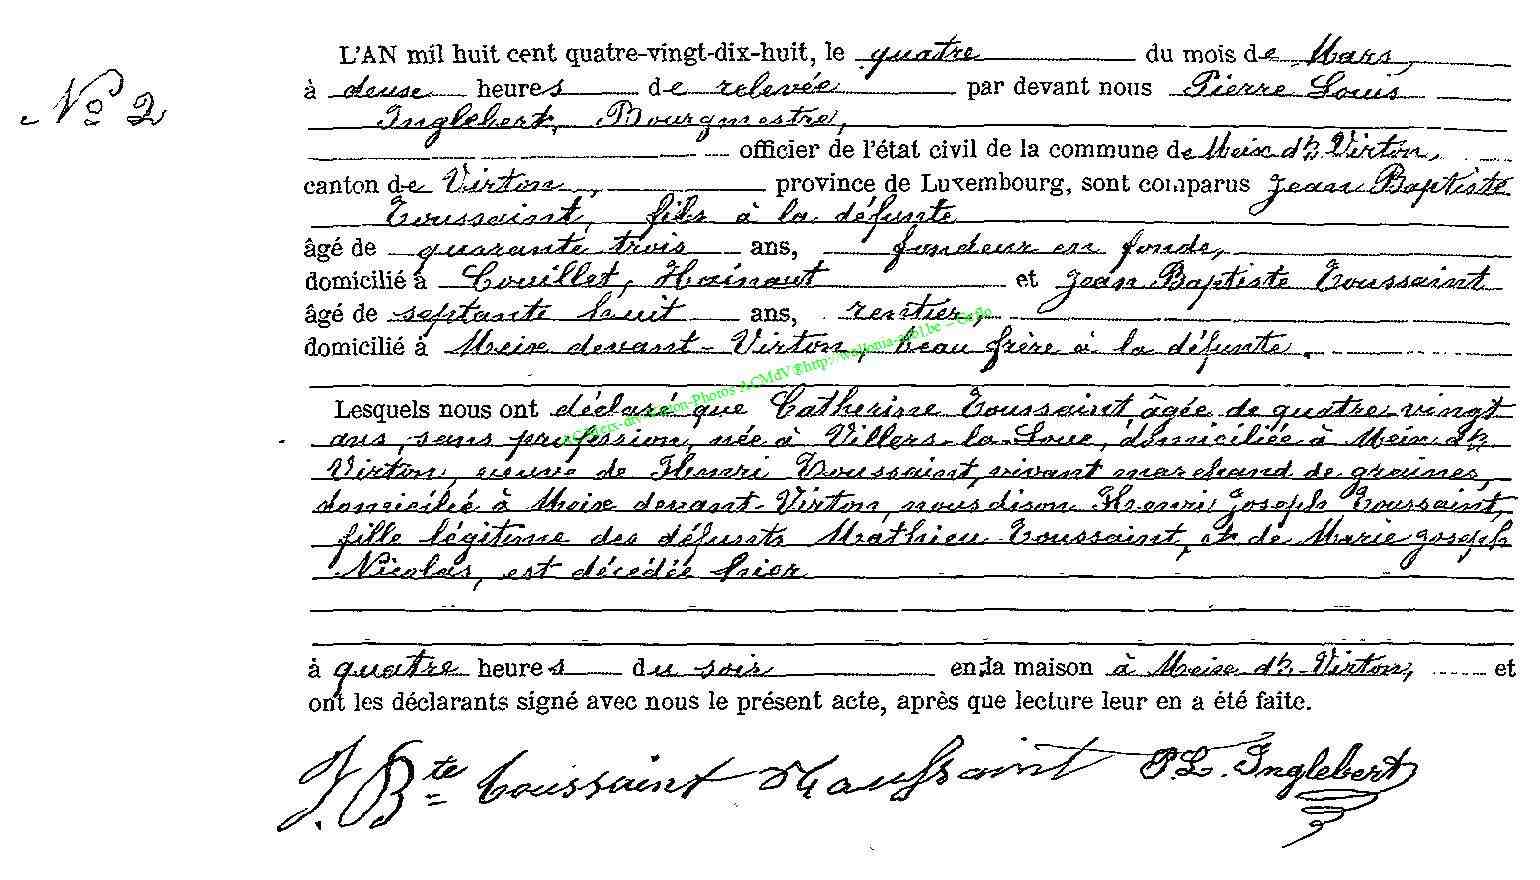 L'AN mil huit cent quatre-vingt-dix-huit, le quatre du mois de Mars,
N° 2
à deuse heures de relevée par devant nous Pierre Louis
Inglebert, Bourgmestre,
officier de l'état civil de la commune de Meix dt Virton,
canton de Virton, province de Luxembourg, sont comparus Jean Baptiste
Toussaint, fils à la défunte
âgé de quarante trois ans, fondeur en fonde,
domicilié à Couillet, Hainaut et Jean Baptiste Toussaint
âgé de septante huit ans, rentier,
domicilié à Meix devant-Virton, beau frère à la défunte.
Lesquels nous ont déclaré que Catherine Toussaint âgée de quatre vingt
ans, sans profession, née à Villers-la-Loue, domiciliée à Meix dt
Virton, veuve de Henri Toussaint, vivant marchand de graines,
domicilié à Meix devant-Virton, nous dison Henri Joseph Toussaint,
fille légitime des défunts Mathieu Toussaint, et de Marie Joseph
Nicolas, est décédée hier
à quatre heures du soir en la maison à Meix dt-Virton, et
ont les déclarants signé avec nous le présent acte, après que lecture leur en a été faite.
J. Bte Toussaint Toussaint P. L. Inglebert